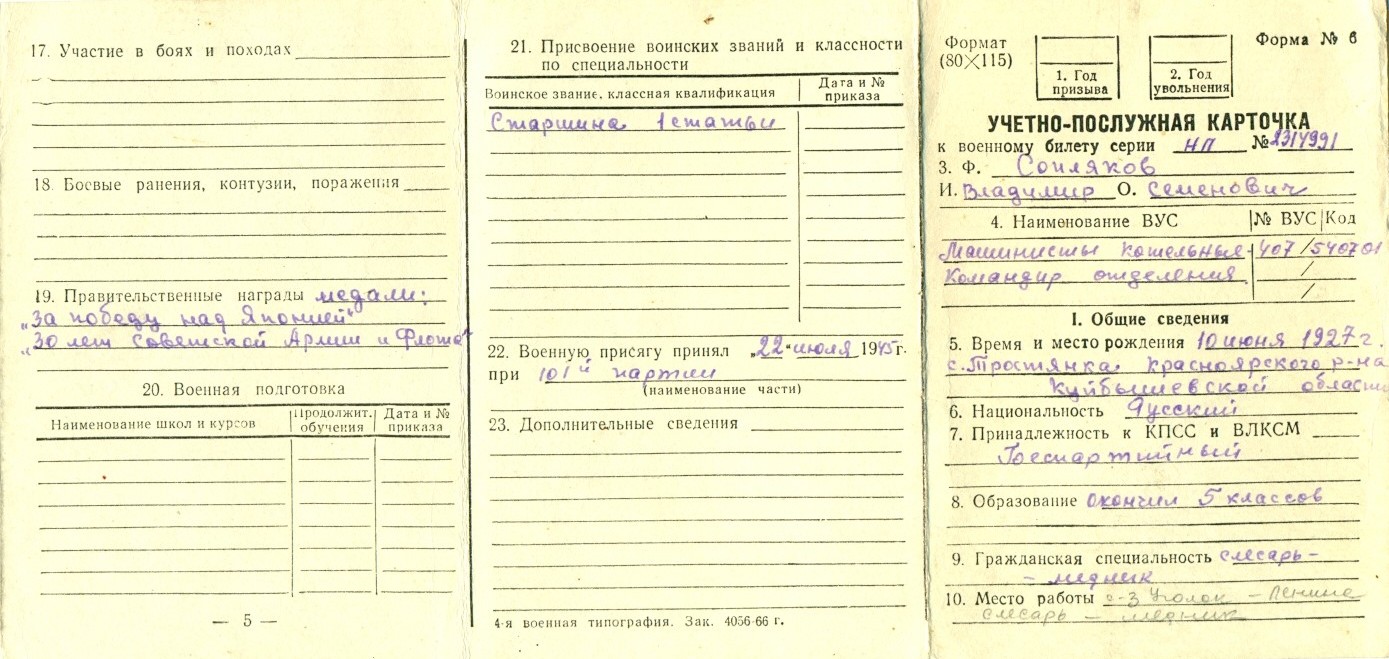 17. Участие в боях и походах
18. Боевые ранения, контузии, поражения
19. Правительственные награды медали:
„За победу над Японией"
„30 лет Советской Армии и Флота"
20. Военная подготовка
Наименование школ и курсов
Продолжит. обучения
Дата и № приказа
— 5 —
21. Присвоение воинских званий и классности
по специальности
Воинское звание, классная квалификация
Дата и № приказа
Старшина 1 статьи
22. Военную присягу принял „22" июля 1945 г.
при 101й партии
(наименование части)
23. Дополнительные сведения
4-я военная типография. Зак. 4056-66 г.
Формат
(80×115)
1. Год
призыва
2. Год
увольнения
Форма № 6
УЧЕТНО-ПОСЛУЖНАЯ КАРТОЧКА
к военному билету серии НП № 2314991
3. Ф. Сопляков
И. Владимир О. Семенович
4. Наименование ВУС № ВУС Код
Машинисты котельные 407/540701
Командир отделения /
/
I. Общие сведения
5. Время и место рождения 10 июня 1927 г.
с. Тростянка Красноярского р-на
Куйбышевской области
6. Национальность Русский
7. Принадлежность к КПСС и ВЛКСМ
Беспартийный
8. Образование окончил 5 классов
9. Гражданская специальность слесарь-
- медник
10. Место работы с-з Уголок - Ленина
слесарь - медник